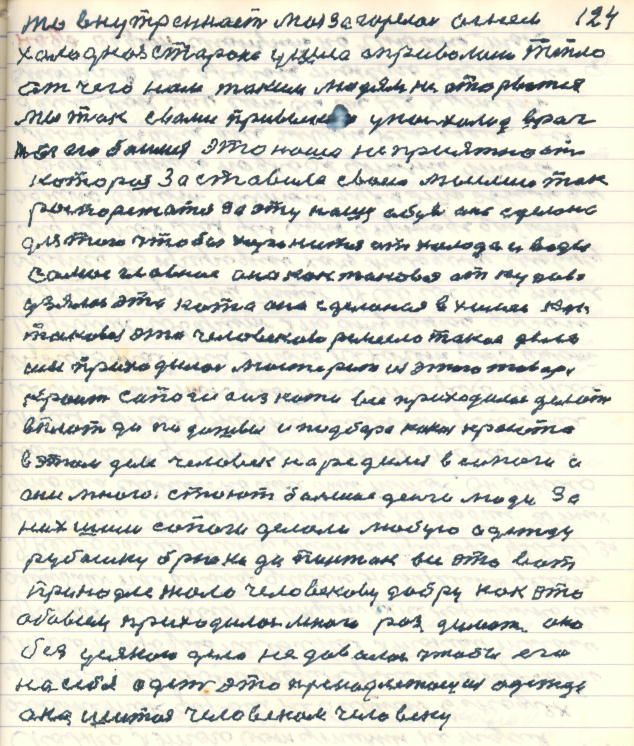 то внутреннаст моя загорелоя огнем 124
халодноя старона ушла априволии тепло
от чего нам таким людям не оторватся
мы так свами привыкли у нас холод враг
это наша неприятност
котороя заставила свои мысли так
росторжатся за эту нашу обув она сделона
для того чтобы хоронится от холода и воды
самое главное она как таковоя от куда
взялос эта кожа она сделаноя в химии как
таковоя это человеково ремесло такое дело
им приходилос мастерит из этого товара
кроит сапоги из кожи все приходилос делат
вплот до подошвы и подбора какая красота
в этом деле человек нарядился в сапоги а
они много стоют болшие денги люди за
них шили сапоги делали любую одежду
рубашку брюки да пинжак все это вот
принодлежало человекову добру как это
обовсем приходилос много роз думат оно
без усякого дело недовалос чтобы его
насебя одет это принодлежащия одежда
она шитоя человеком человеку